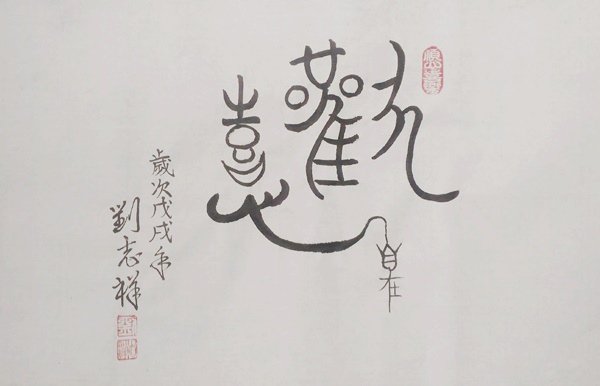 歡憙
自在
歲次戊戌年
劉志祥